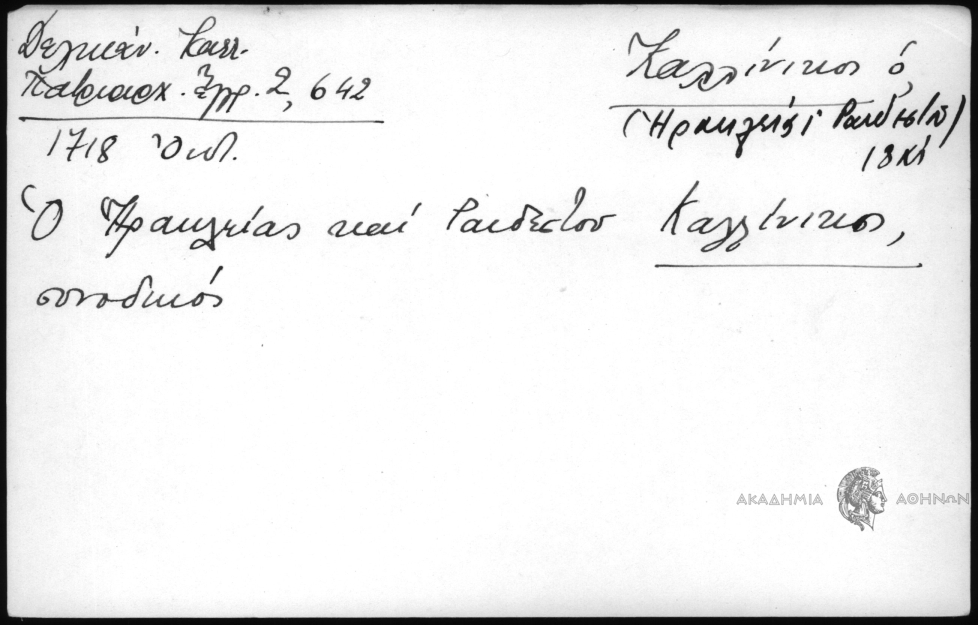 Δελικάν. Καλλ.
Πατριαρχ. Ἔγγρ. 2, 642
1718 Ὀκτ.
Καλλίνικος ὁ
(Ἡρακλείας Ραιδεστοῦ)
18 αἰ
Ὁ Ἡρακλείας καί Ραιδεστοῦ Καλλίνικος,
συνοδικός
ΑΚΑΔΗΜΙΑ ΑΘΗΝΩΝ